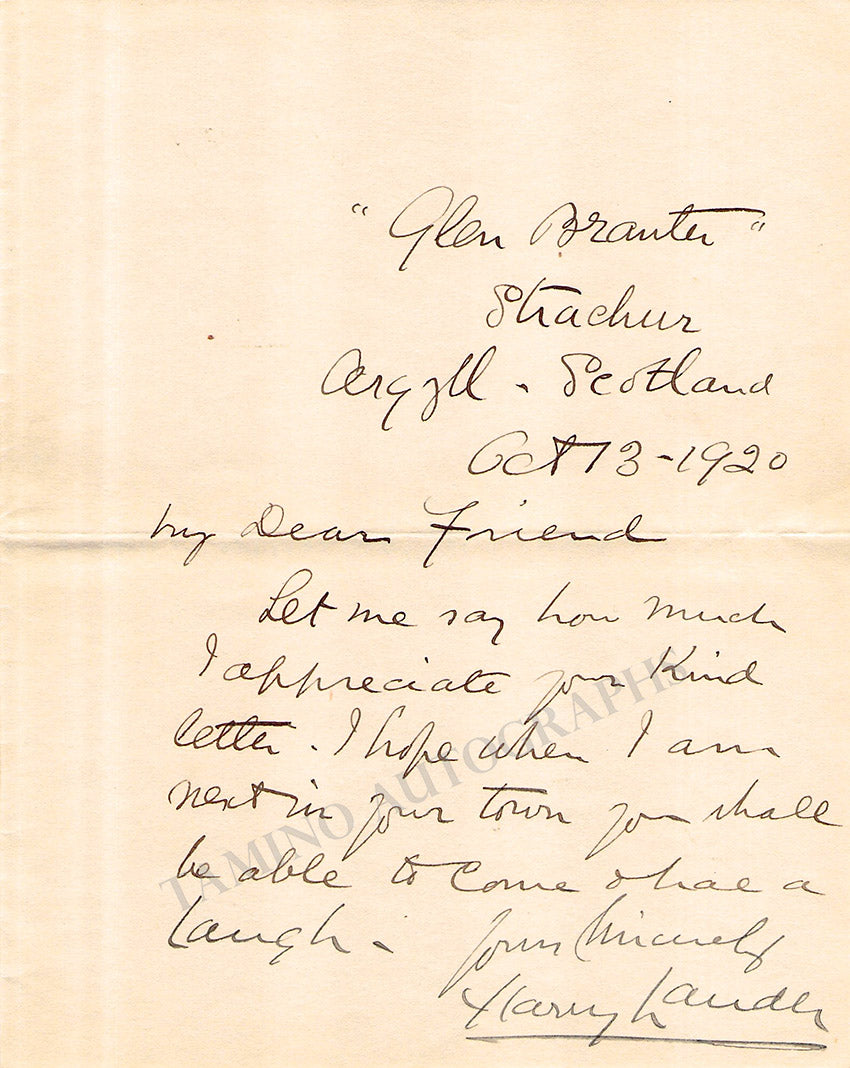 "Glen Branter"
Strachur
Argyll - Scotland
Oct 13-1920
My Dear Friend
Let me say how much
I appreciate your Kind
letter. I hope when I am
next in your town you shall
be able to come & hae a
Laugh - Yours Sincerely
Harry Lauder
TAMINO AUTOGRAPHS